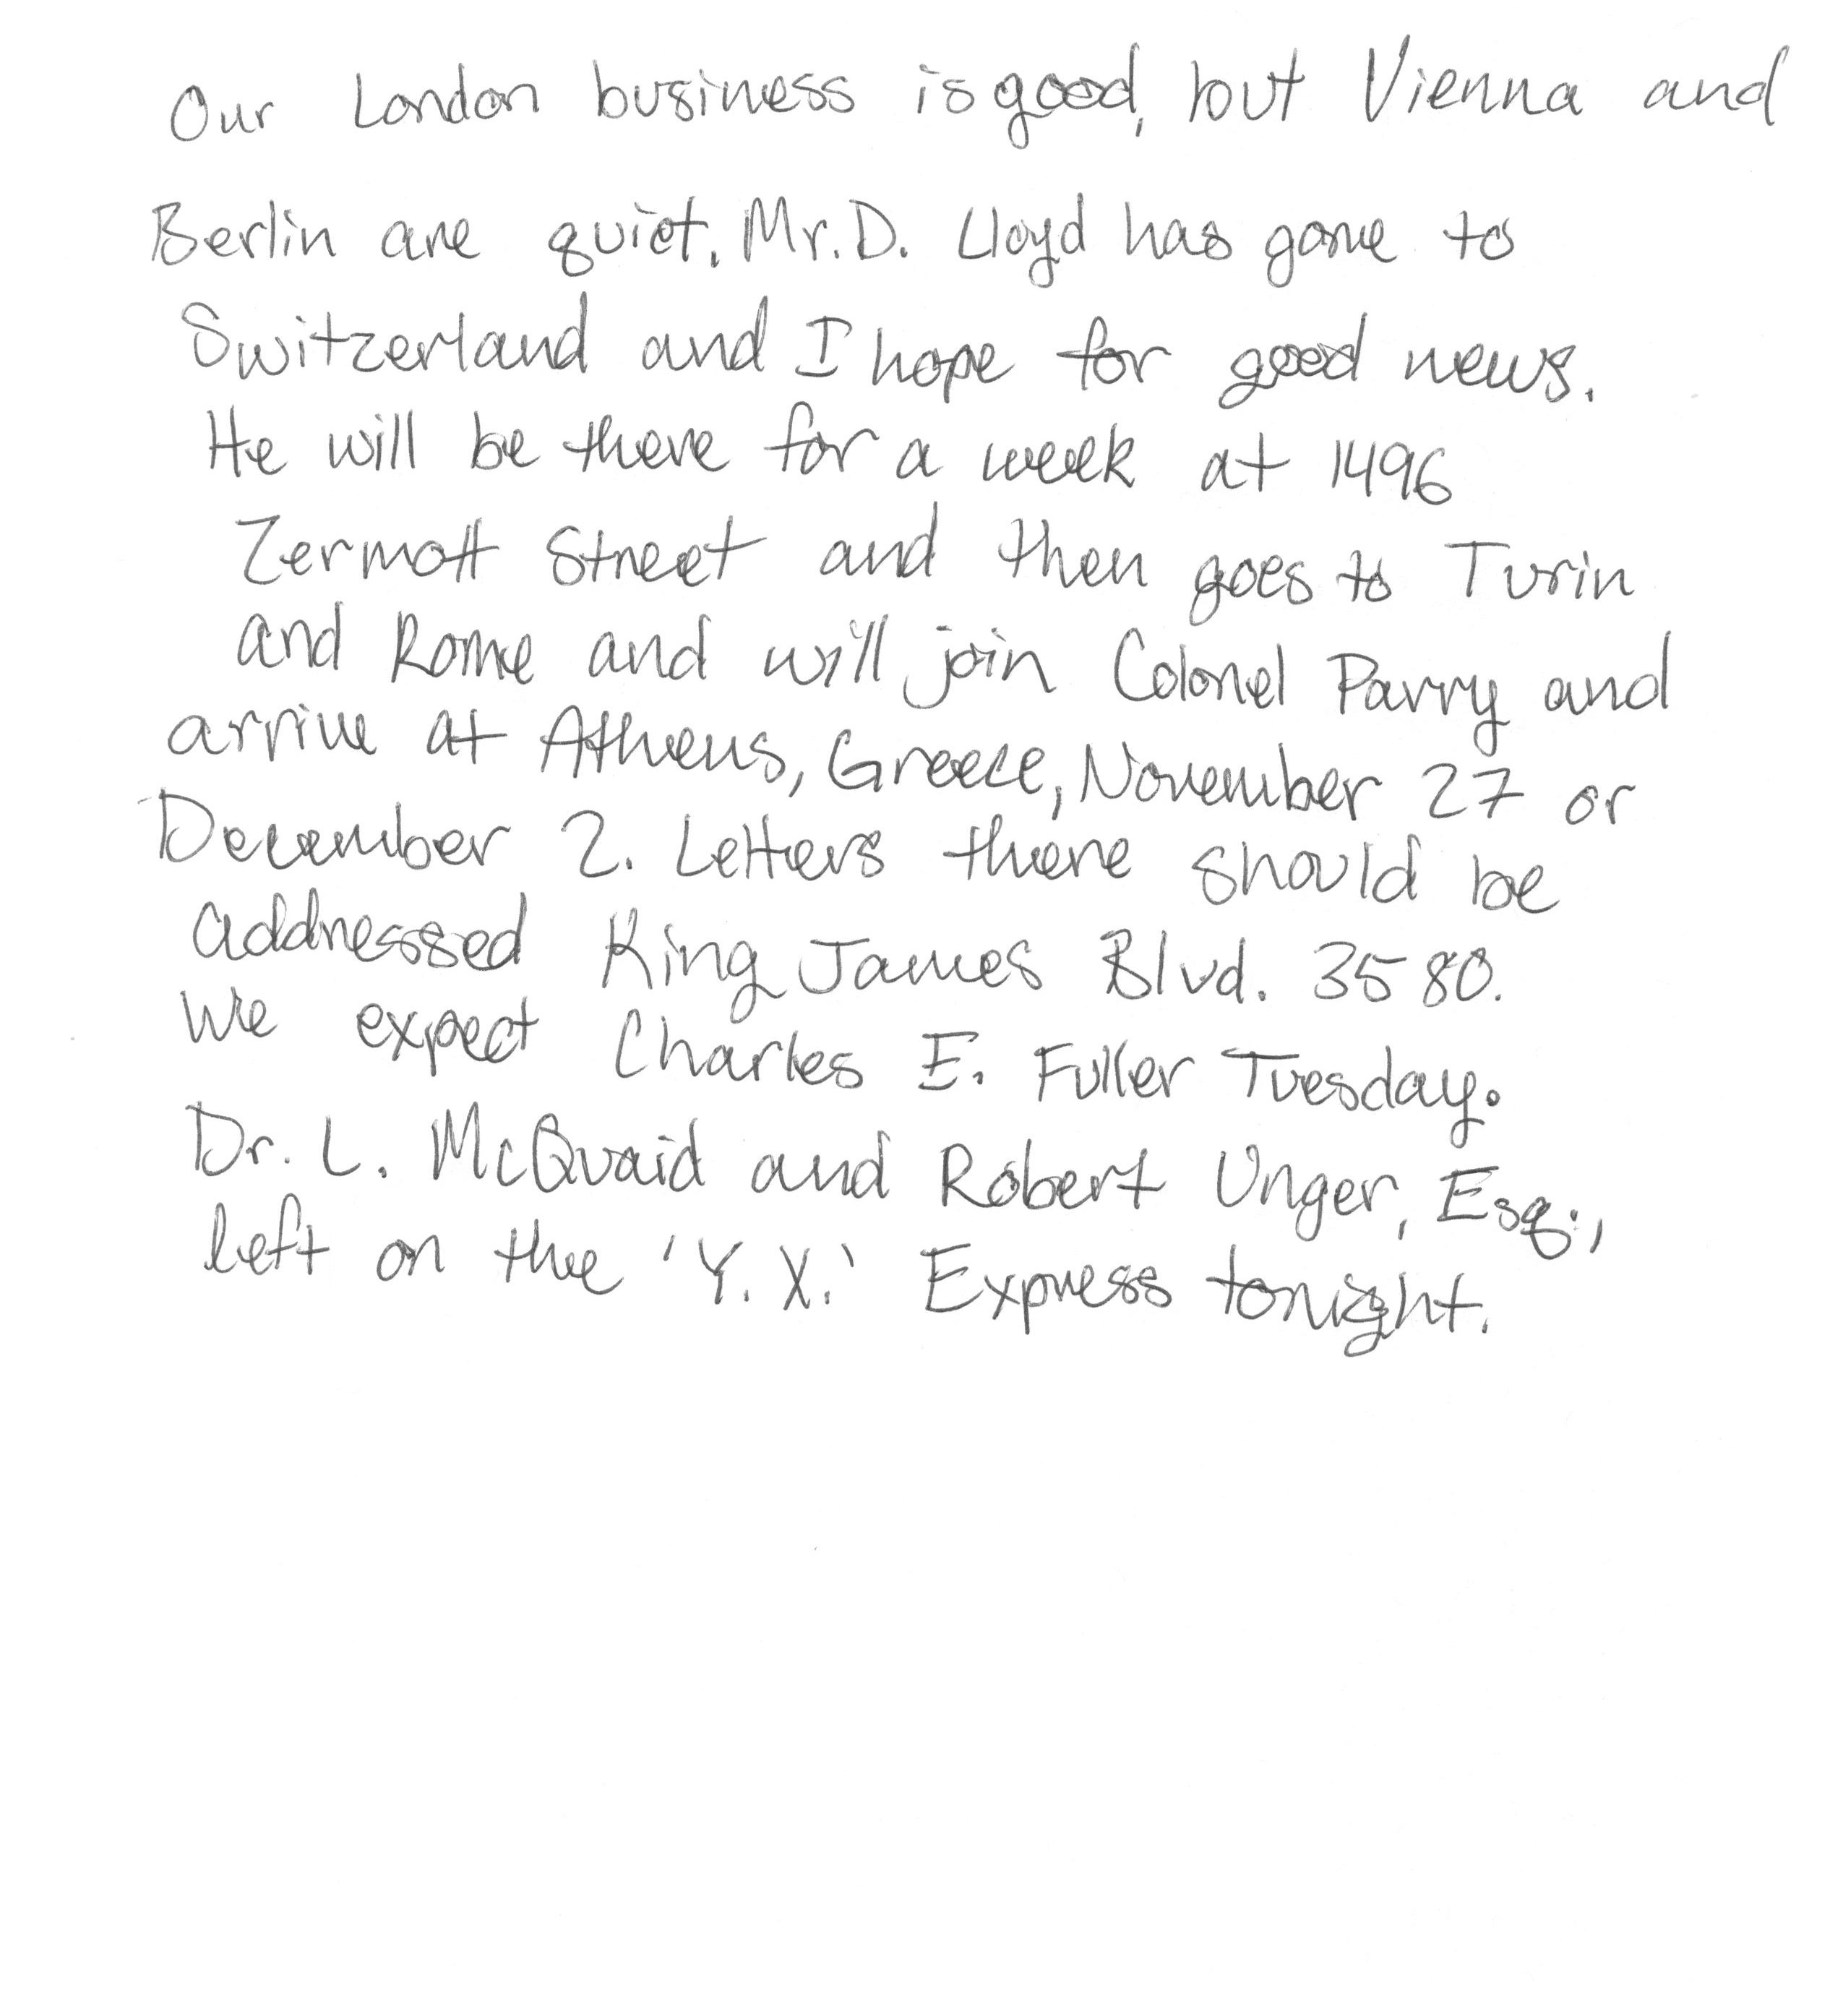 Our London business is good, but Vienna and
Berlin are quiet. Mr. D. Lloyd has gone to
Switzerland and I hope for good news.
He will be there for a week at 1496
Zermott Street and then goes to Turin
and Rome and will join Colonel Parry and
arrive at Athens, Greece, November 27 or
December 2. Letters there should be
addressed King James Blvd. 3580.
We expect Charles E. Fuller Tuesday.
Dr. L. McQuaid and Robert Unger, Esq.,
left on the 'Y.X.' Express tonight.